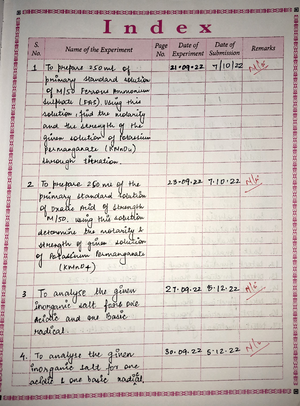 Index
S. No. Name of the Experiment Page No. Date of Experiment Date of Submission Remarks
1 To prepare 250 ml of 21.09.22 7/10/22
primary standard solution
of M/50 Ferrous Ammonium
sulphate (FAS). Using this
solution find the molarity
and the strength of the
given solution of Potassium
Permanganate (KMnO4)
through titration.
2 To prepare 250 ml of the 23.09.22 7.10.22
primary standard solution
of Oxalic Acid of strength
M/50. using this solution
determine the molarity &
strength of given solution
of Potassium Permanganate
(KMnO4)
3 To analyse the given 27.09.22 5.12.22
inorganic salt for one
Acidic and one Basic
Radical.
4. To analyse the given 30.09.22 5.12.22
inorganic salt for one
acidic & one basic radial.